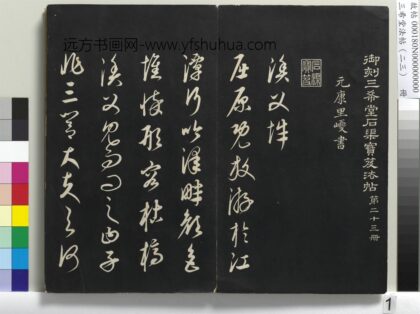 远方书画网-www.yfshuhua.com
三希堂法帖(二三) 冊
御刻三希堂石渠寶笈法帖 第二十三冊
元康里巎書
漁父辭
屈原既放游於江
潭行吟澤畔顏色
憔悴形容枯槁
漁父見而問之曰子
非三閭大夫與何
1